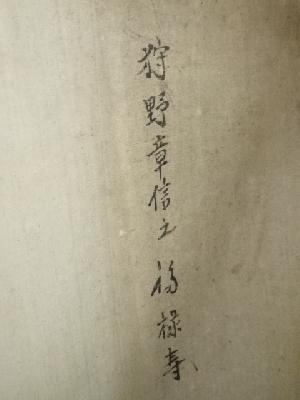 狩野章信之福禄寿